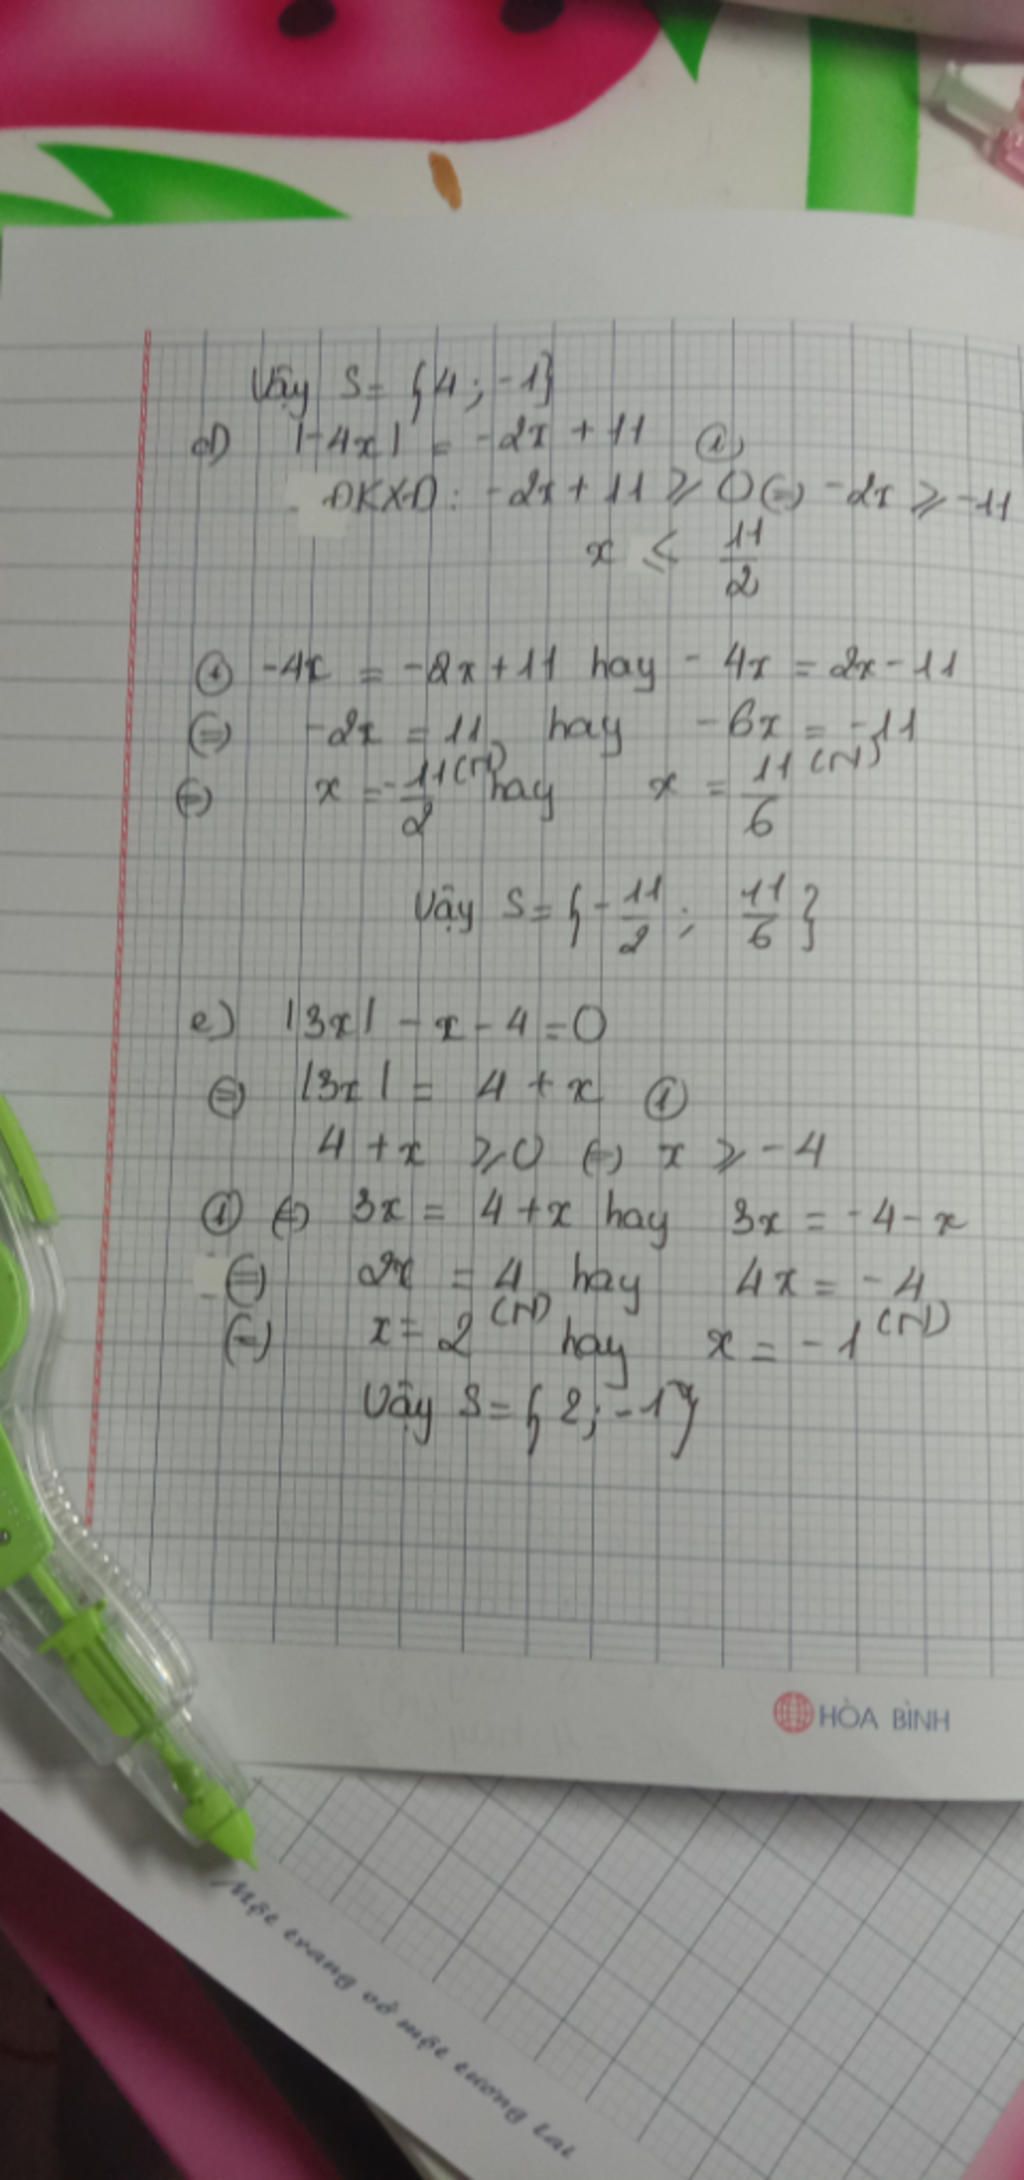 Vậy S = {4 ; -1}
d) |-4x| = -2x + 11 ①
ĐKXĐ: -2x + 11 ⩾ 0 (=) -2x ⩾ -11
x ⩽ 11/2
① -4x = -2x + 11 hay - 4x = 2x - 11
(=) -2x = 11 hay -6x = -11
(=) x = -11/2 (N) hay x = 11/6 (N)
Vậy S = {-11/2 ; 11/6}
e) |3x| - x - 4 = 0
(=) |3x| = 4 + x ①
4 + x ⩾ 0 (=) x ⩾ -4
① (=) 3x = 4 + x hay 3x = -4 - x
(=) 2x = 4 hay 4x = -4
(=) x = 2 (N) hay x = -1 (N)
Vậy S = {2; -1}
HÒA BÌNH
Một trang vở một tương lai